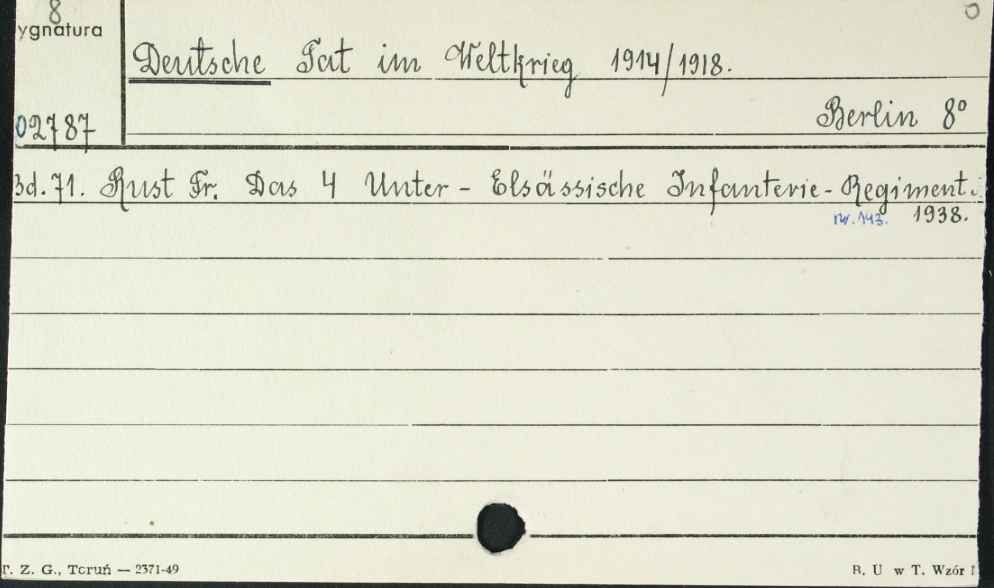 8
ygnatura
Deutsche Tat im Weltkrieg 1914/1918.
02787
Berlin 8°
Bd. 71. Rust Fr. Das 4 Unter - Elsässische Infanterie - Regiment.
Nr. 143. 1938.
T. Z. G., Toruń — 2371-49
B. U w T. Wzór